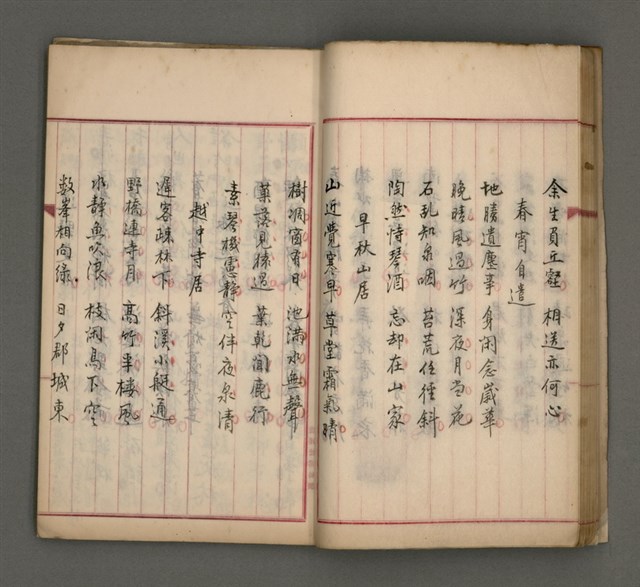 余生負丘壑 相送亦何心
春宵自遣
地勝遺塵事 身闲念歲華
晚晴風過竹 深夜月当花
石乱知泉咽 苔荒任徑斜
陶然恃琴酒 忘却在山家
早秋山居
山近覺寒早 草堂霜氣晴
樹凋窗有日 池滿水無聲
菓落見猿過 葉乾聞鹿行
素琴機慮静 空伴夜泉清
越中寺居
遲客疎林下 斜溪小艇通
野橋連寺月 高竹半楼風
水静魚吹浪 枝闲鳥下空
数峯相向綠 日夕郡城東